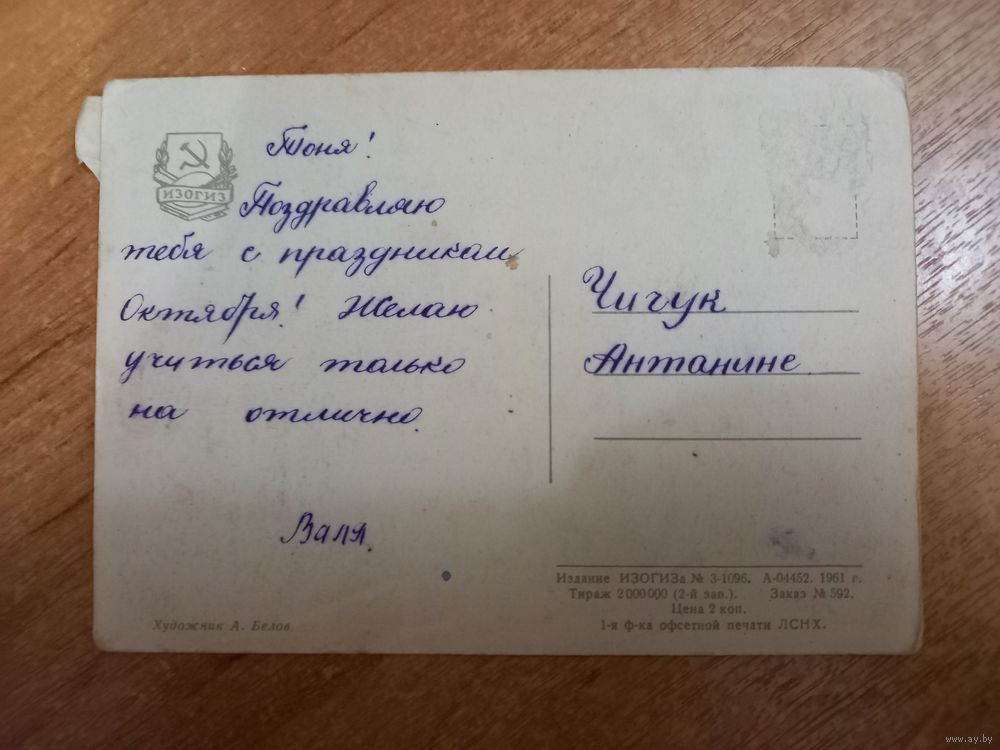 ИЗОГИЗ
Тоня!
Поздравляю
тебя с праздником
Октября! Желаю
учиться только
на отлично.
Валя.
Художник А. Белов
Чичук
Антанине
Издание ИЗОГИЗа № 3-1096. А-04452. 1961 г.
Тираж 2 000 000 (2-й зав.). Заказ № 592.
Цена 2 коп.
1-я ф-ка офсетной печати ЛСНХ.
www.ay.by